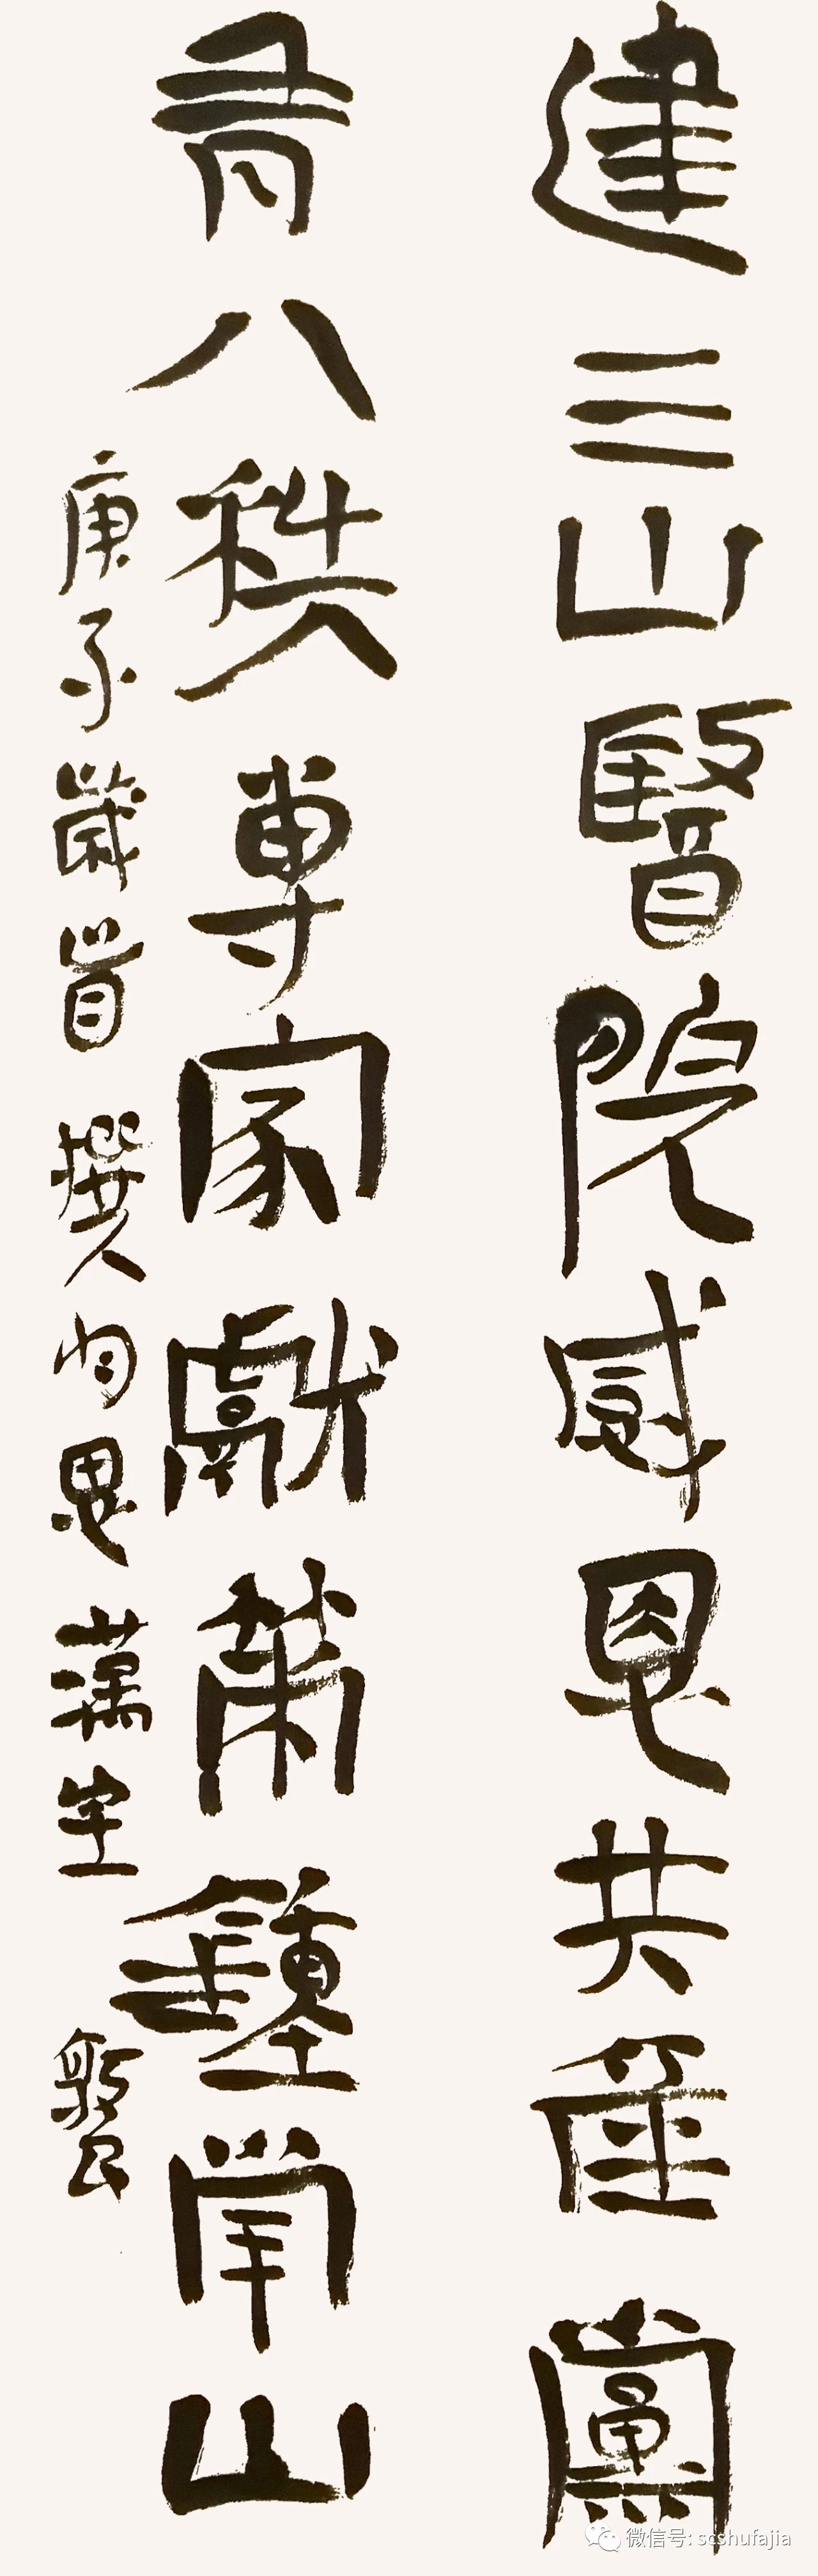 建三山醫院感恩共產黨
看八秩專家獻策鍾南山
庚子歲首撰句思生
微信号: scshufajia